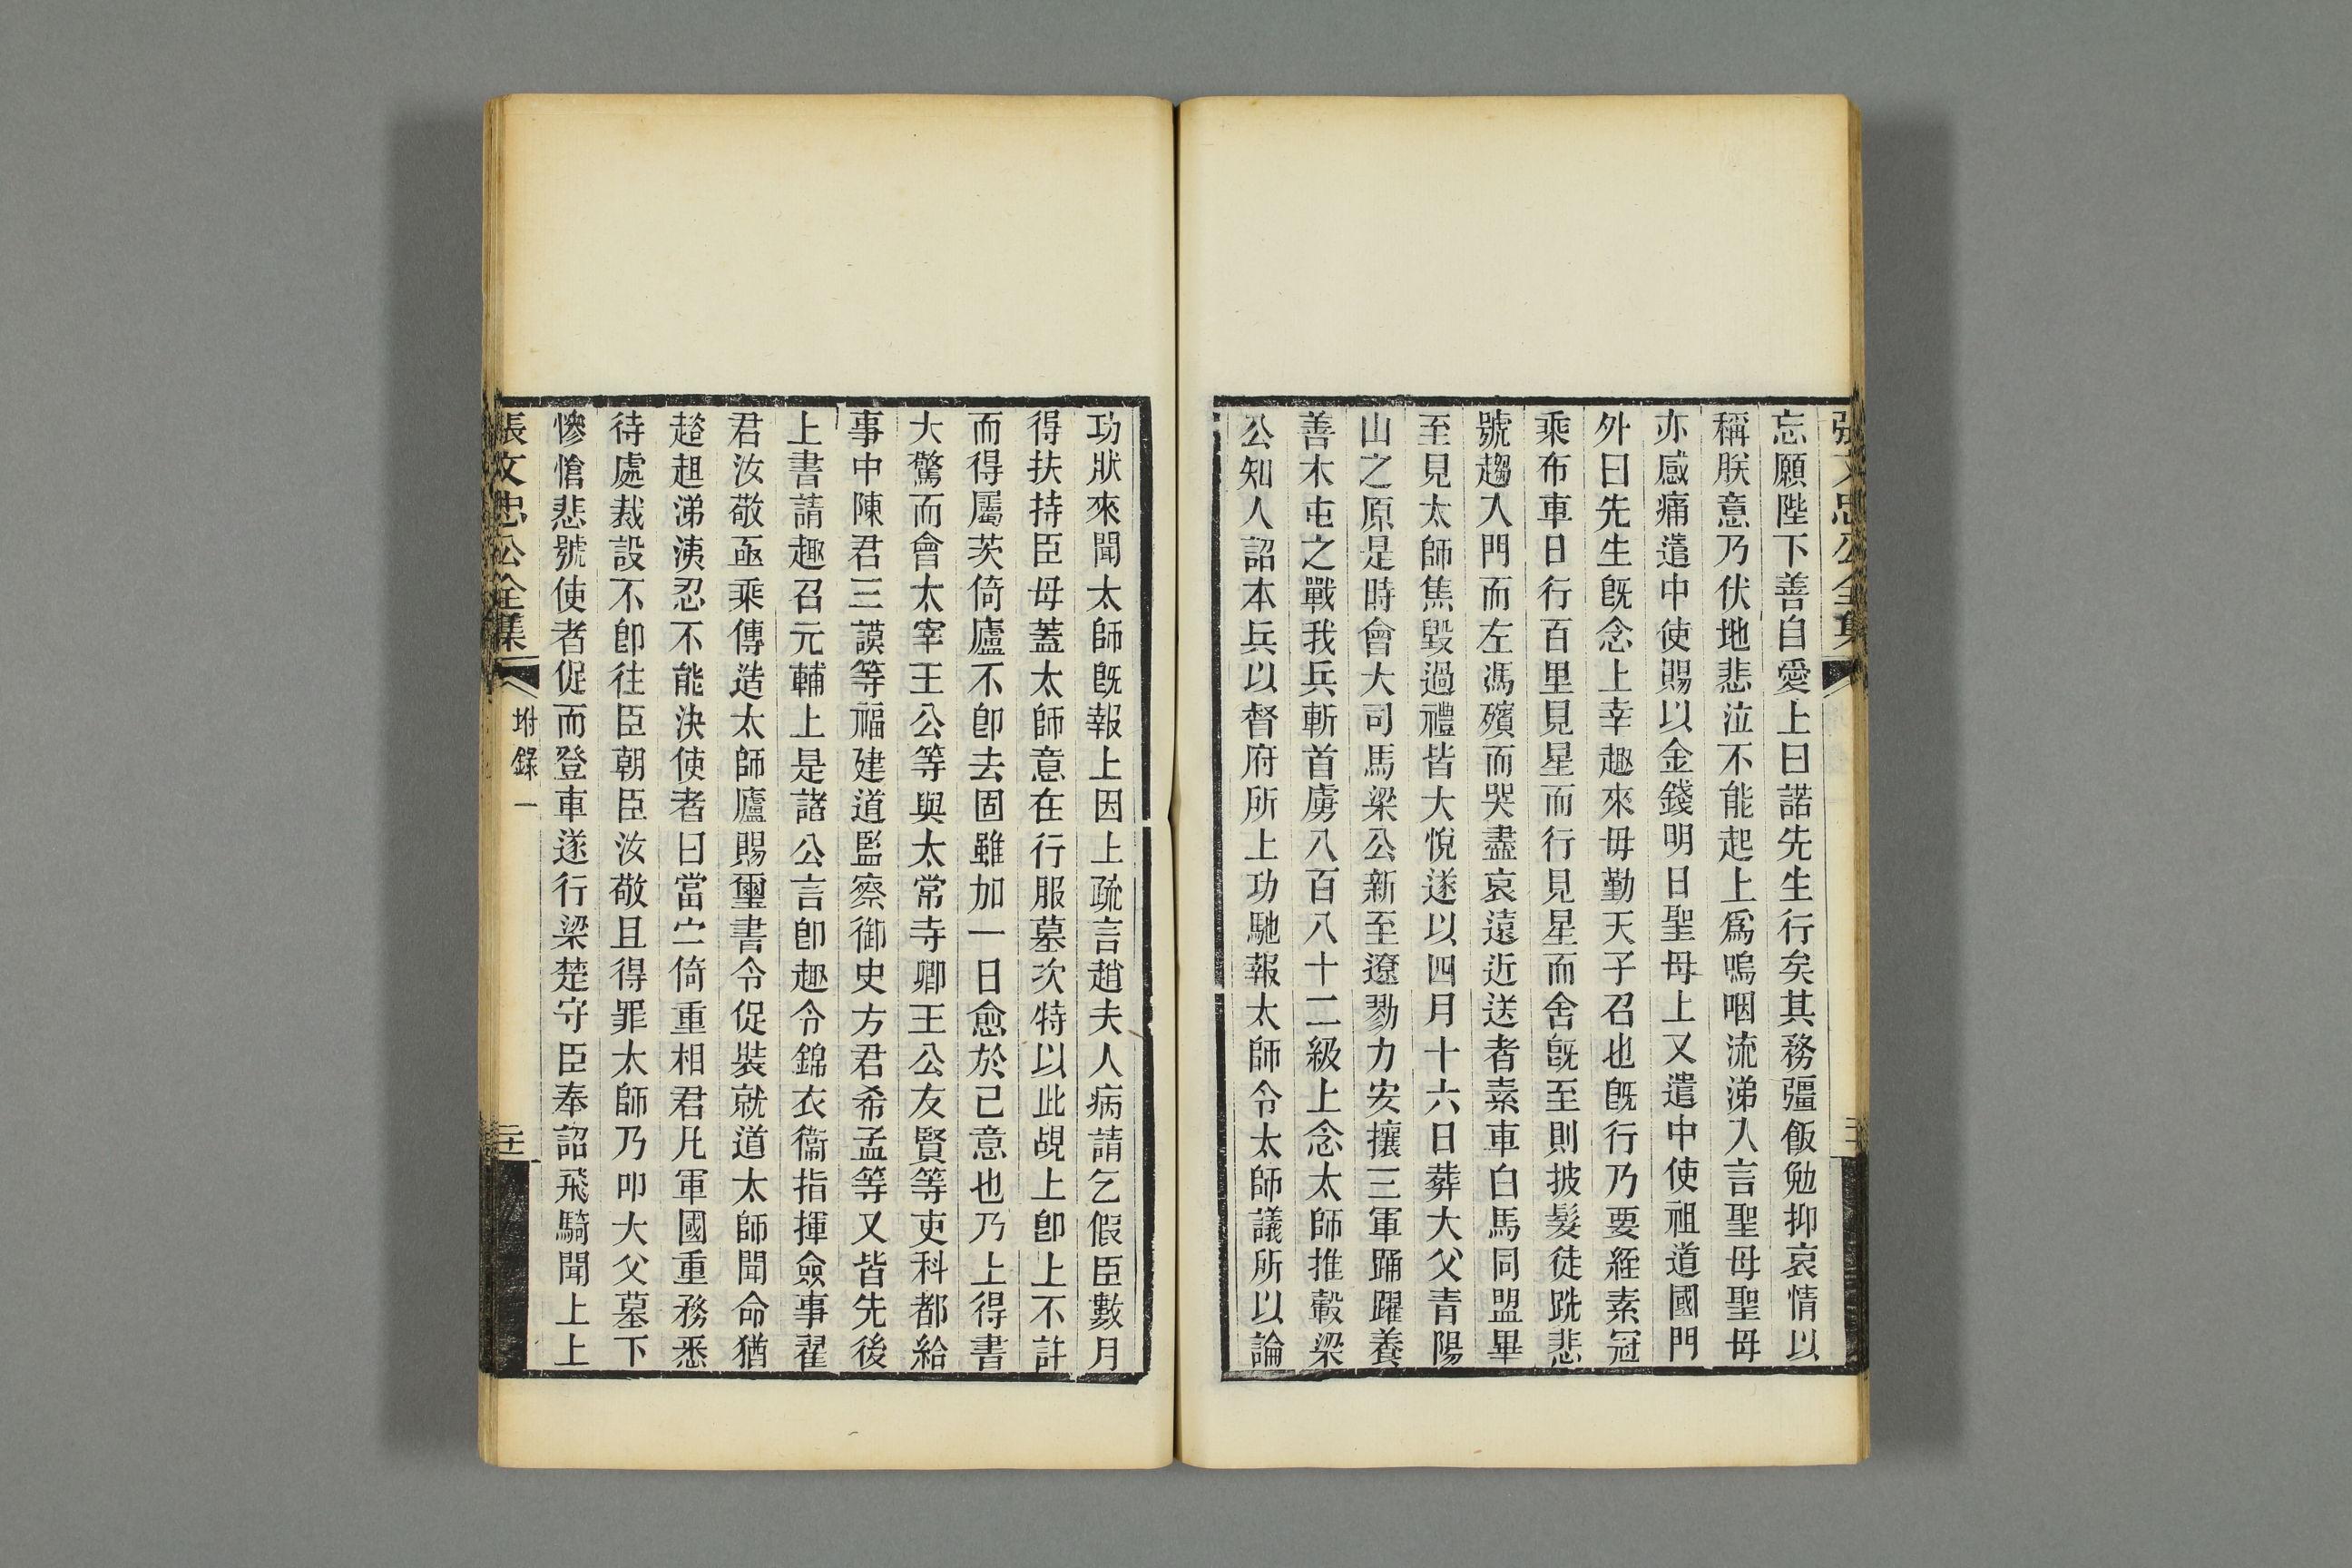 張文忠公全集
忘願陛下善自愛上曰諾先生行矣其務彊飯勉抑哀情以
稱朕意乃伏地悲泣不能起上爲嗚咽流涕入言聖母聖母
亦感痛遣中使賜以金錢明日聖母上又遣中使祖道國門
外曰先生旣念上幸趣來毋勤天子召也旣行乃要絰素冠
乘布車日行百里見星而行見星而舍旣至則披髮徒跣悲
號趨入門而左馮殯而哭盡哀遠近送者素車白馬同盟畢
至見太師焦毀過禮皆大悅遂以四月十六日葬大父青陽
山之原是時會大司馬梁公新至遼勠力安攘三軍踊躍養
善木屯之戰我兵斬首虜八百八十二級上念太師推轂梁
公知人詔本兵以督府所上功馳報太師令太師議所以論
功狀來聞太師旣報上因上疏言趙夫人病請乞假臣數月
得扶持臣母蓋太師意在行服墓次特以此覘上卽上不許
而得屬茨倚廬不卽去固雖加一日愈於己意也乃上得書
大驚而會太宰王公等與太常寺卿王公友賢等吏科都給
事中陳君三謨等福建道監察御史方君希孟等又皆先後
上書請趣召元輔上是諸公言卽趣令錦衣衞指揮僉事翟
君汝敬亟乘傳造太師廬賜璽書令促裝就道太師聞命猶
趦趄涕洟忍不能決使者曰當宁倚重相君凡軍國重務悉
待處裁設不卽往臣朝臣汝敬且得罪太師乃叩大父墓下
慘愴悲號使者促而登車遂行梁楚守臣奉詔飛騎聞上上
張文忠公全集 坿錄一 二十一